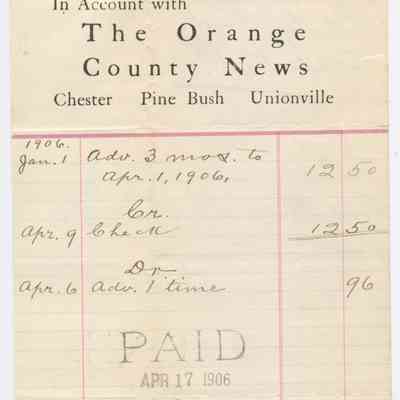 In Account with
The Orange
County News
Chester Pine Bush Unionville
1906.
Jan. 1 Adv. 3 mos. to
Apr. 1, 1906, 12 50
Cr.
Apr. 9 Check 12 50
Dr
Apr. 6 Adv. 1 time 96
PAID
APR 17 1906